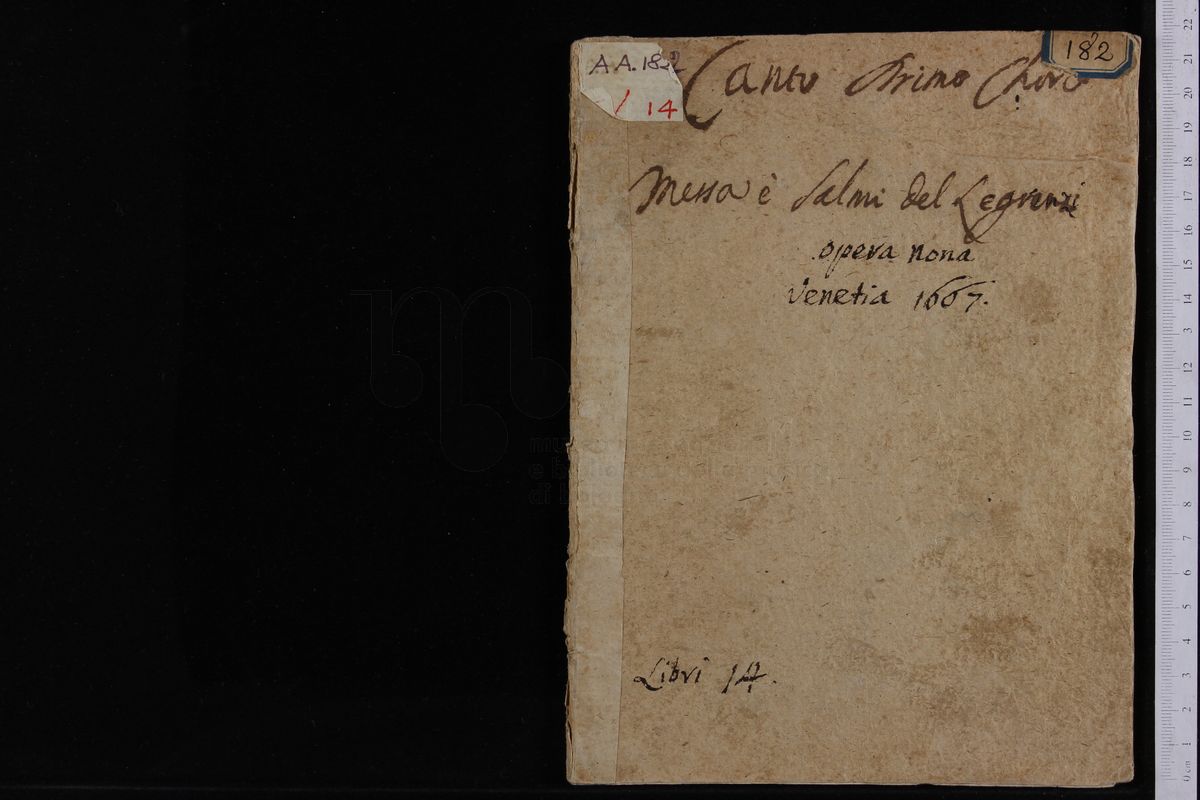 AA.182
/ 14
182
Canto Primo Choro
Messa è Salmi del Legrenzi
opera nona
Venetia 1667.
Libri 14.
0 cm 1 2 3 4 5 6 7 8 9 10 11 12 13 14 15 16 17 18 19 20 21 22